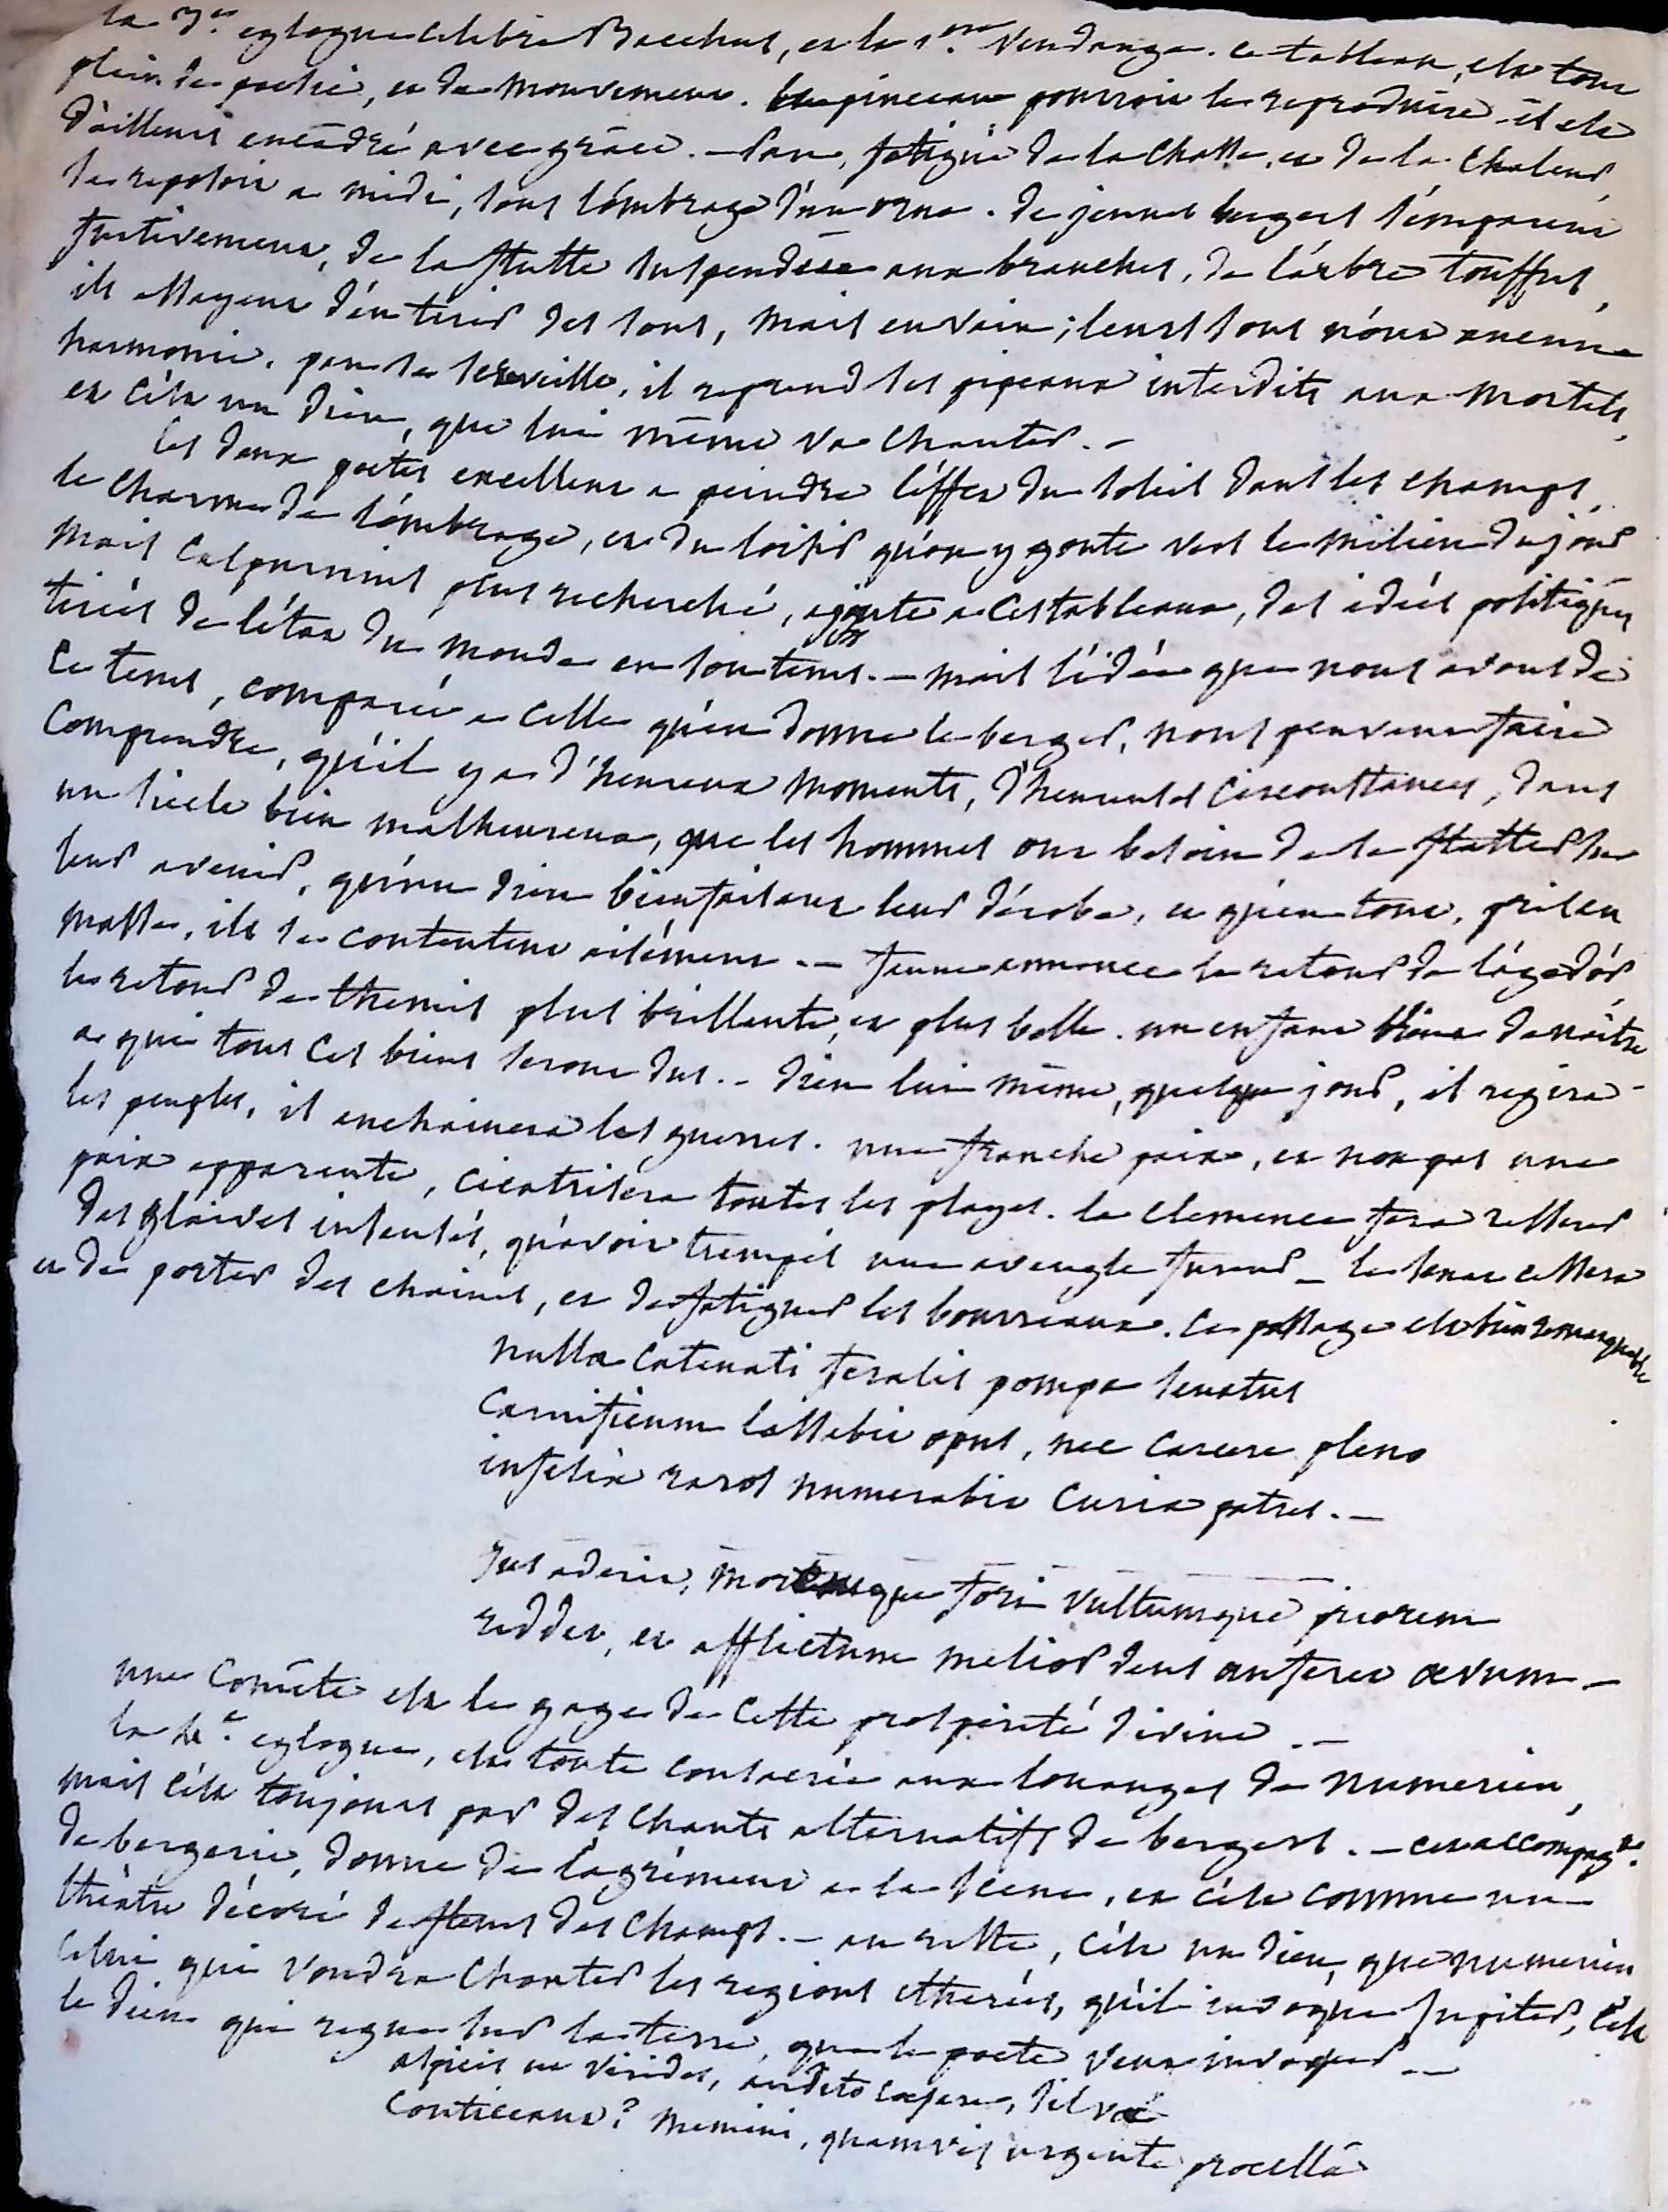 la 3e. eglogue celebre Bacchus, et la 1ere. Vendange. ce tableau, est tout
plein de poësie, et de mouvement. le pinceau pourroit le reproduire. il est
d'ailleurs encadré avec grâce. - Pan, fatigué de la chasse, et de la chaleur,
se reposoit a midi, sous l'ombrage d'un orme. de jeunes bergers s'emparent
furtivement, de la flutte suspendüe aux branches, de l'arbre touffus,
ils essayent d'en tirer des sons, mais en vain ; leurs sons n'ont aucune
harmonie. pan se reveille, il reprend ses pipeaux interdits aux mortels,
et c'est un dieu, que lui même va chanter. -
les deux poëtes excellent a peindre l'effet du soleil dans les champs,
le charme de l'ombrage, et du loisir qu'on y goute vers le milieu du jour
mais Calpurnius plus recherché, ajoute a ces tableaux, des idées politiques
tirées de l'état du monde en son tems. - mais l'idée que nous avons de
ce tems, comparée a celle qu'en donne le berger, nous peuvent faire
comprendre, qu'il y a d'heureux moments, d'heureuses circonstances, dans
un siècle bien malheureux, que les hommes ont besoin de se flatter sur
leur avenir, qu'un dieu bienfaisant leur dérobe, et qu'en tout, pris en
masse, ils se contentent aisément. - faune annonce le retour de l'âge d'or
le retour de themis plus brillante, et plus belle. un enfant vient de naître
a qui tous ces biens seront dus. - dieu lui même, quelque jour, il regira
les peuples, il enchainera les guerres. une franche paix, et non pas une
paix apparente, cicatrisera toutes les playes. la clemence fera
des glaives insensés, qu'avoit trempés une aveugle fureur - le senat cessera
et de porter des chaines, et de fatiguer les bourreaux. ce passage est bien remarquable
nulla catenati feralis pompa senatus
Carnificum lassabit opus, nec carcere pleno
infelix raros numerabit curia patres. -
Jus aderit, moremque fori vultumque priorem
reddet, et afflictum melior deus auferet ævum -
une Comête est le gage de cette prospérité divine. -
la 4e. eglogue, est toute consacrée aux louanges de numerien,
mais c'est toujours par des chants alternatifs de bergers. - cet accompagnt.
de bergerie, donne de l'agrément a la scene, et c'est comme un
théâtre décoré de fleurs des champs. - au reste, c'est un dieu, que numerien
celui qui voudra chanter les regions etherées, qu'il invoque Jupiter, c'est
le dieu qui regne sur la terre, que le poëte veut invoquer. -
aspicis ut virides, audito cæsare, silvæ
Conticeant? memini, quamvis urgente procellâ